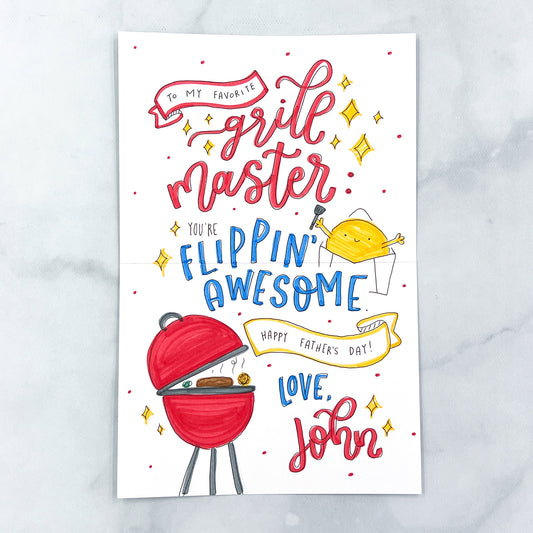 TO MY FAVORITE
grill
master:
YOU'RE
FLIPPIN'
AWESOME.
HAPPY FATHER'S DAY!
LOVE,
John